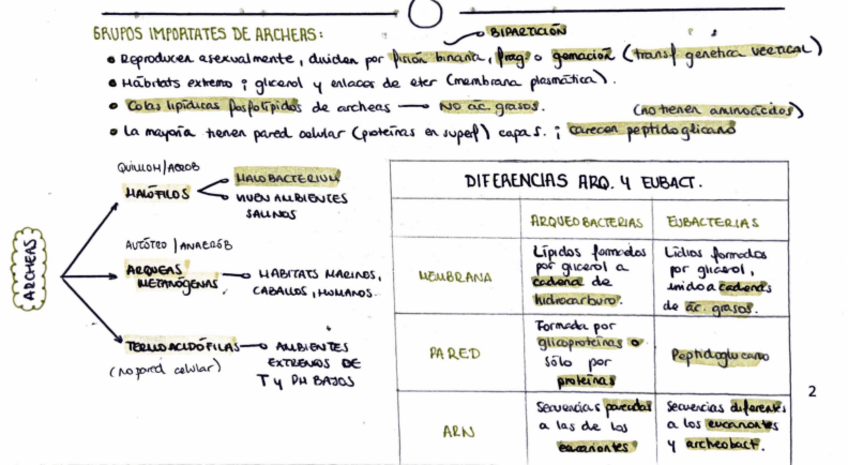 GRUPOS IMPORTATES DE ARCHEAS:
BIPARTICIÓN
• Reproducen asexualmente, dividen por fisión binaria, frag. o gemación (transf genética VERTICAL)
• Hábitats extremo ; glicerol y enlaces de eter (membrana plasmática).
• Colas lipídicas fosfolípidos de archeas → NO ác. grasos. (no tienen aminoácidos)
• La mayoría tienen pared celular (proteínas en superf) capa S. ; carecen peptidoglicano
ARCHEAS
QUIMIOH/AEROB
HALÓFILOS
HALOBACTERIUM
VIVEN AMBIENTES
SALINOS
AUTÓTRO / ANAERÓB
ARQUEAS
METANÓGENAS
HABITATS MARINOS,
CABALLOS, HUMANOS.
TERMOACIDÓFILAS
(no pared celular)
AMBIENTES
EXTREMOS DE
T Y PH BAJOS
DIFERENCIAS ARQ. Y EUBACT.
ARQUEOBACTERIAS
EUBACTERIAS
MEMBRANA
Lípidos formados
por glicerol a
cadenas de
hidrocarburo.
Lídios formados
por glicerol,
unido a cadenas
de ác. grasos.
PARED
Formada por
glicoproteínas o
sólo por
proteínas
Peptidoglucano
ARN
Secuencias parecidas
a las de los
eucariontes
Secuencias diferentes
a los eucariontes
y archeobact.
2